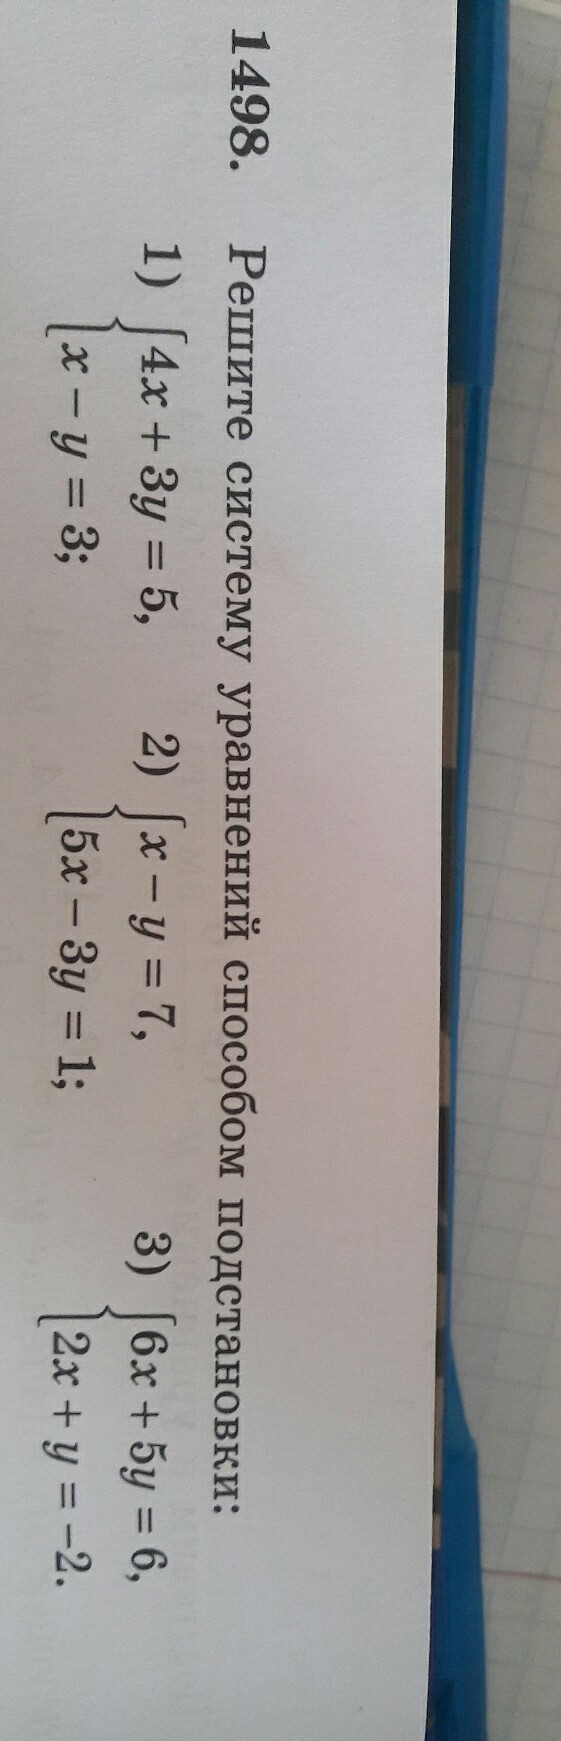 1498. Решите систему уравнений способом подстановки:
1) {4x + 3y = 5, 2) {x − y = 7, 3) {6x + 5y = 6,
x − y = 3; 5x − 3y = 1; 2x + y = −2.